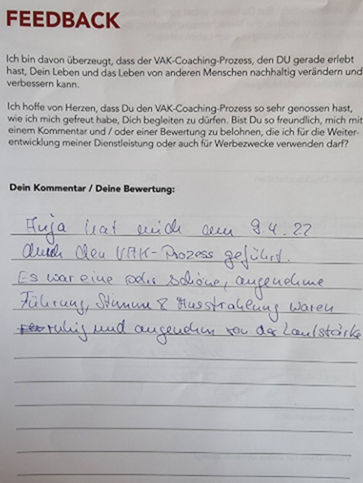 FEEDBACK
Ich bin davon überzeugt, dass der VAK-Coaching-Prozess, den DU gerade erlebt
hast, Dein Leben und das Leben von anderen Menschen nachhaltig verändern und
verbessern kann.
Ich hoffe von Herzen, dass Du den VAK-Coaching-Prozess so sehr genossen hast,
wie ich mich gefreut habe, Dich begleiten zu dürfen. Bist Du so freundlich, mich mit
einem Kommentar und / oder einer Bewertung zu belohnen, die ich für die Weiter-
entwicklung meiner Dienstleistung oder auch für Werbezwecke verwenden darf?
Dein Kommentar / Deine Bewertung:
Anja hat mich am 9.4.22
durch den VAK-Prozess geführt.
Es war eine sehr schöne, angenehme
Führung, Stimme & Ausstrahlung waren
ruhig und angenehm von der Lautstärke